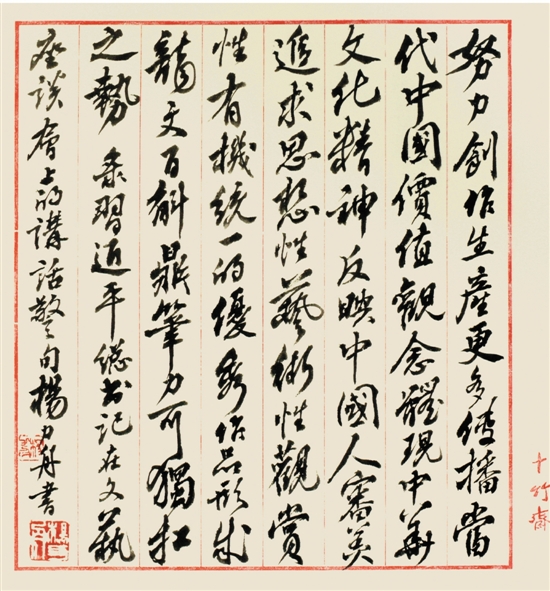 努力創作生產更多傳播當
代中國價值觀念體現中華
文化精神反映中國人審美
追求思想性藝術性觀賞
性有機統一的優秀作品形成
龍文百斛鼎筆力可獨扛
之勢 录習近平總书記在文藝
座談會上的講話警句楊力舟書
十竹齋